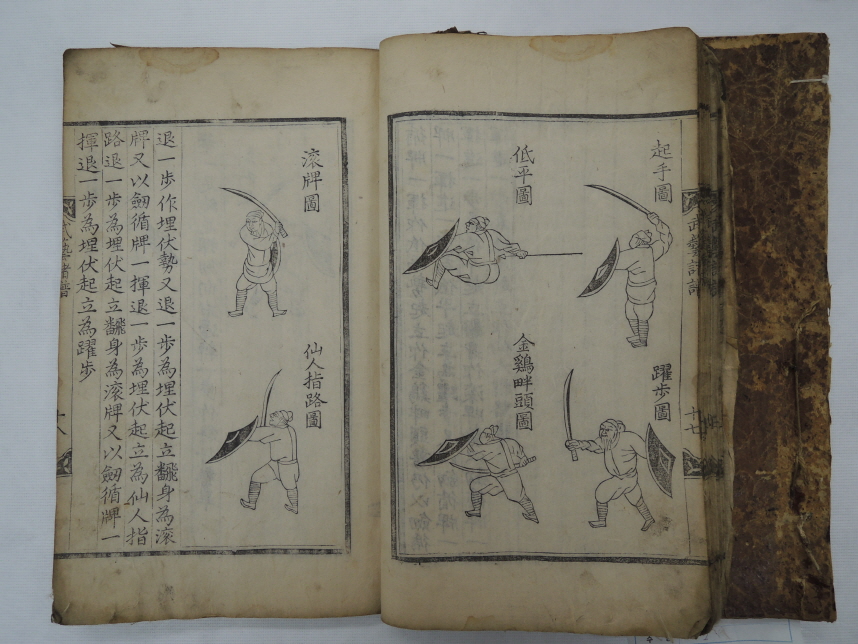 武藝諸譜
十七
起手圖
躍歩圖
低平圖
金鷄畔頭圖
滚牌圖
仙人指路圖
退一歩作埋伏勢又退一歩為埋伏起立飜身為滚
牌又以劒循牌一揮退一歩為埋伏起立為仙人指
路退一歩為埋伏起立飜身為滚牌又以劒循牌一
揮退一歩為埋伏起立為躍歩
武藝諸譜
十八